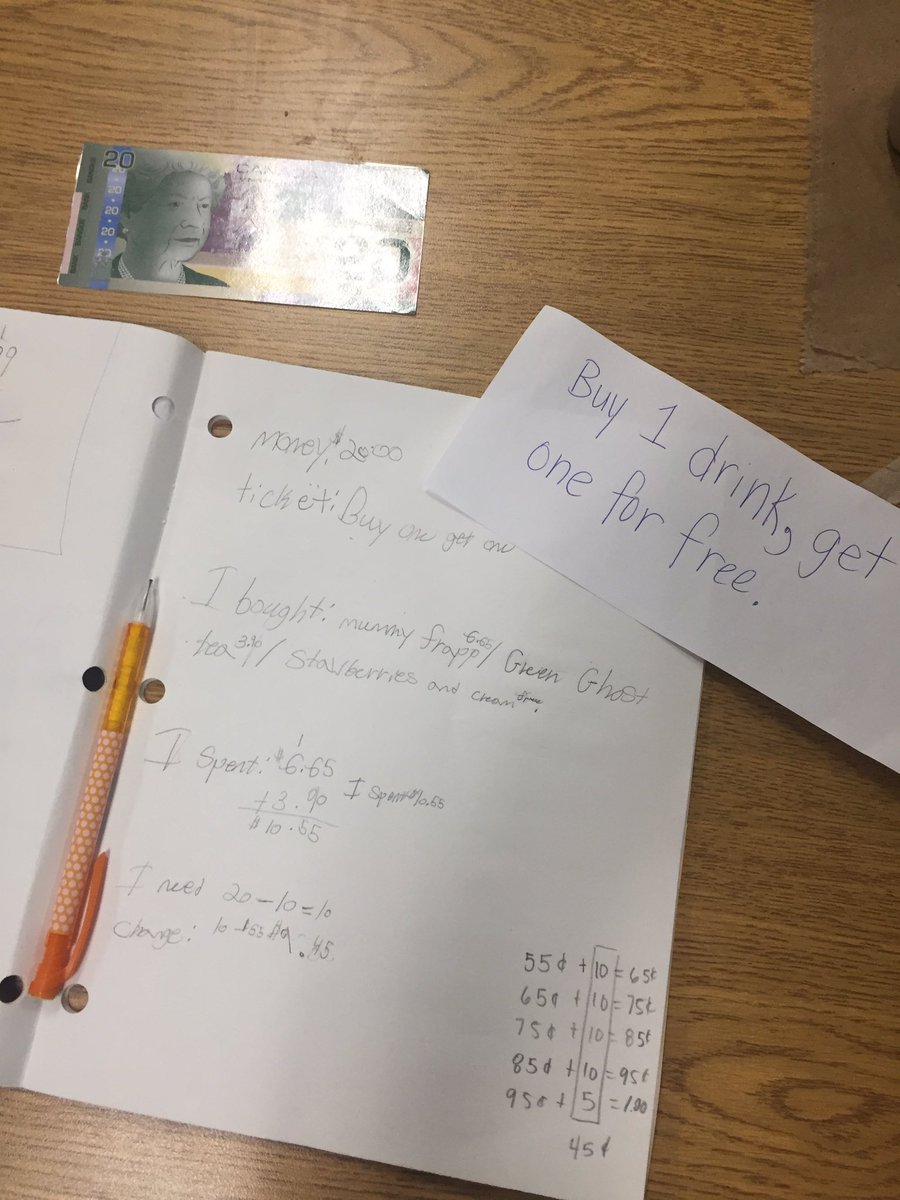 20
20
20
20
20
CAN
Buy 1 drink, get
one for free.
99
money: $20.00
ticket: Buy one get one
I bought: mummy frapp 6.65/ Green Ghost
tea 3.90/ Stawberries and cream free.
I Spent: $6.65
+3.90
$10.55
I spent $10.55
I need 20-10=10
Change: 10 - .55 $9.45
55¢ + 10 = 65¢
65¢ + 10 = 75¢
75¢ + 10 = 85¢
85¢ + 10 = 95¢
95¢ + 5 = 1.00
45¢